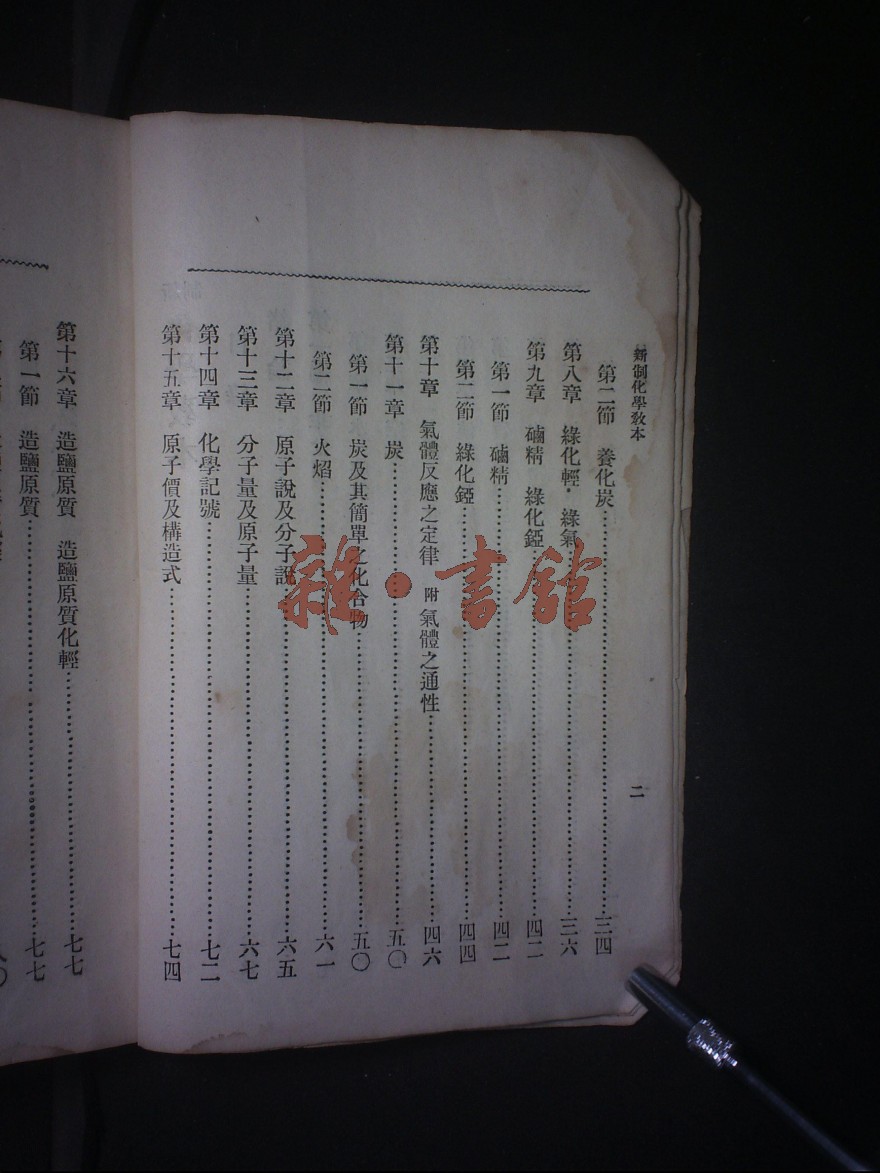 新制化學教本
二
第二節　養化炭……三四
第八章　綠化輕·綠氣……三六
第九章　硇精　綠化錏……四二
第一節　硇精……四二
第二節　綠化錏……四四
第十章　氣體反應之定律　附　氣體之通性……四六
第十一章　炭……五〇
第一節　炭及其簡單之化合物……五〇
第二節　火焰……六一
第十二章　原子說及分子說……六五
第十三章　分子量及原子量……六七
第十四章　化學記號……七二
第十五章　原子價及構造式……七四
第十六章　造鹽原質　造鹽原質化輕……七七
第一節　造鹽原質……七七
雜·書館